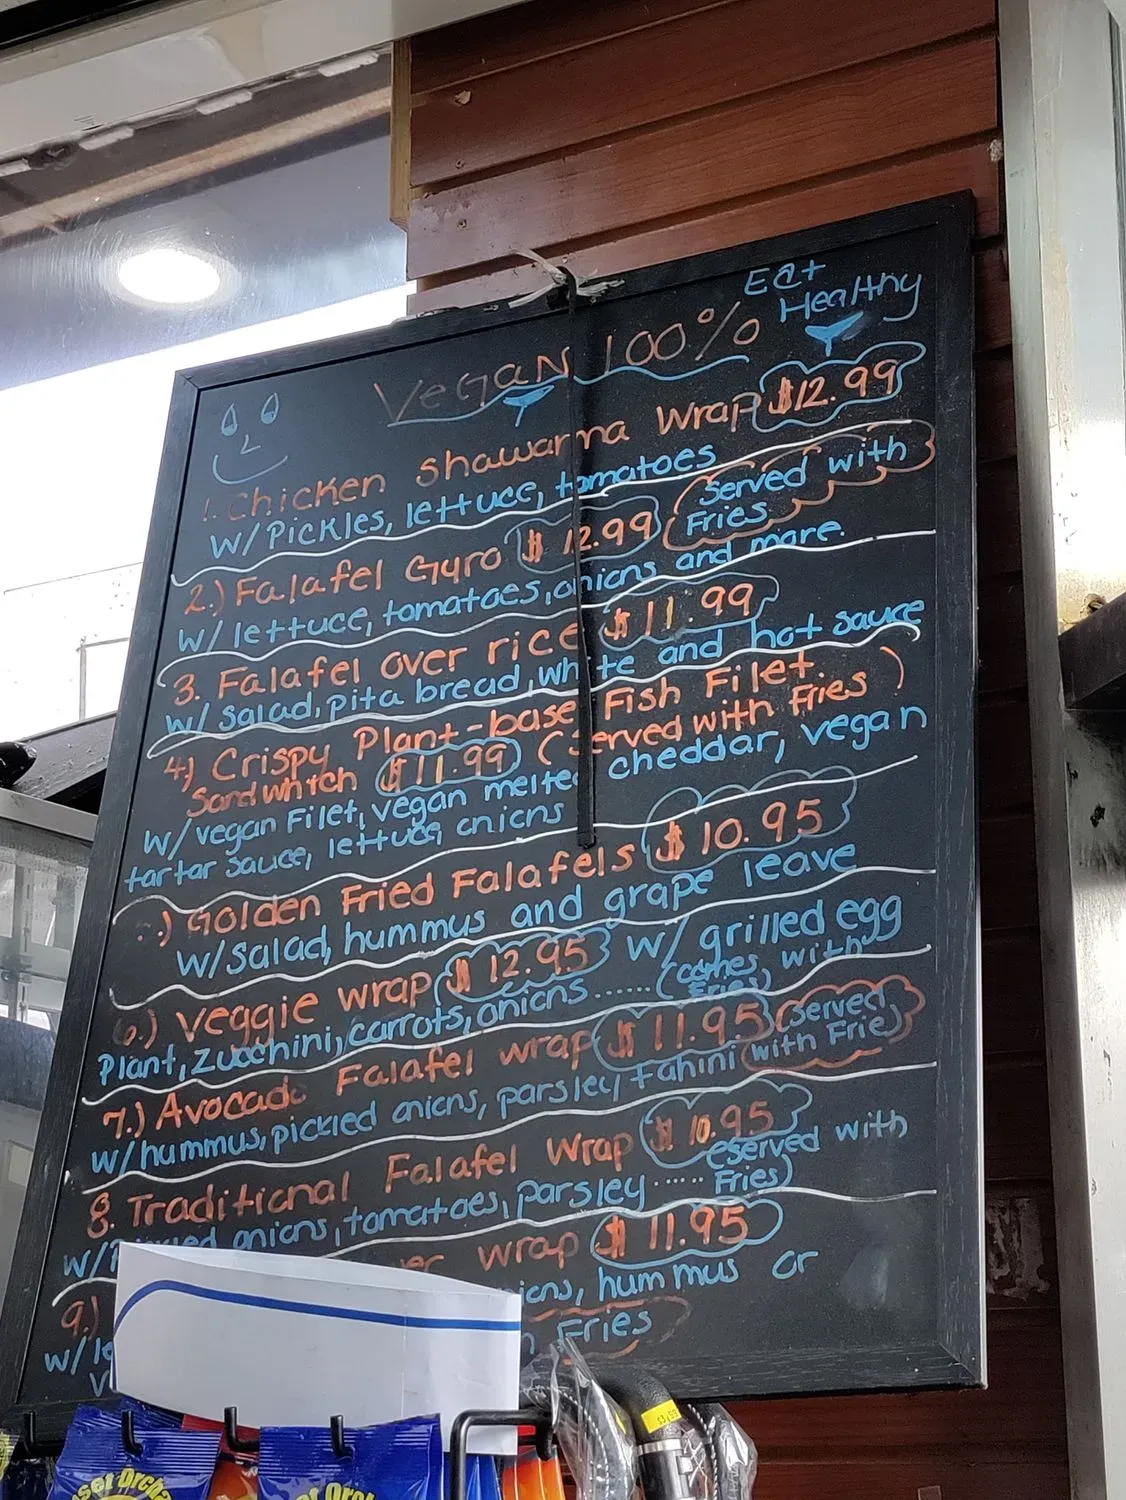 Eat
Healthy
Vegan 100%
1. Chicken Shawarma Wrap $12.99
W/Pickles, lettuce, tomatoes
(Served with
Fries
2.) Falafel Gyro $12.99
W/ lettuce, tomatoes, onions and more.
3. Falafel over rice $11.99
W/ salad, pita bread, white and hot sauce
4) Crispy Plant-base Fish Filet
Sandwhich $11.99 (Served with fries)
W/vegan Filet, vegan melted cheddar, vegan
tartar sauce, lettuce, onions
) Golden Fried Falafels $10.95
W/Salad, hummus and grape leave
6.) Veggie wrap $12.95 W/ grilled egg
Plant, zucchini, carrots, onions...... (comes with
Fries)
7.) Avocado Falafel wrap $11.95 (Served
with Fries)
W/hummus, pickled onions, parsley, tahini
8. Traditional Falafel Wrap $10.95
W/ onions, tomatoes, parsley ..... eserved with
Fries)
9.) wrap $11.95
W/ hummus or
Fries